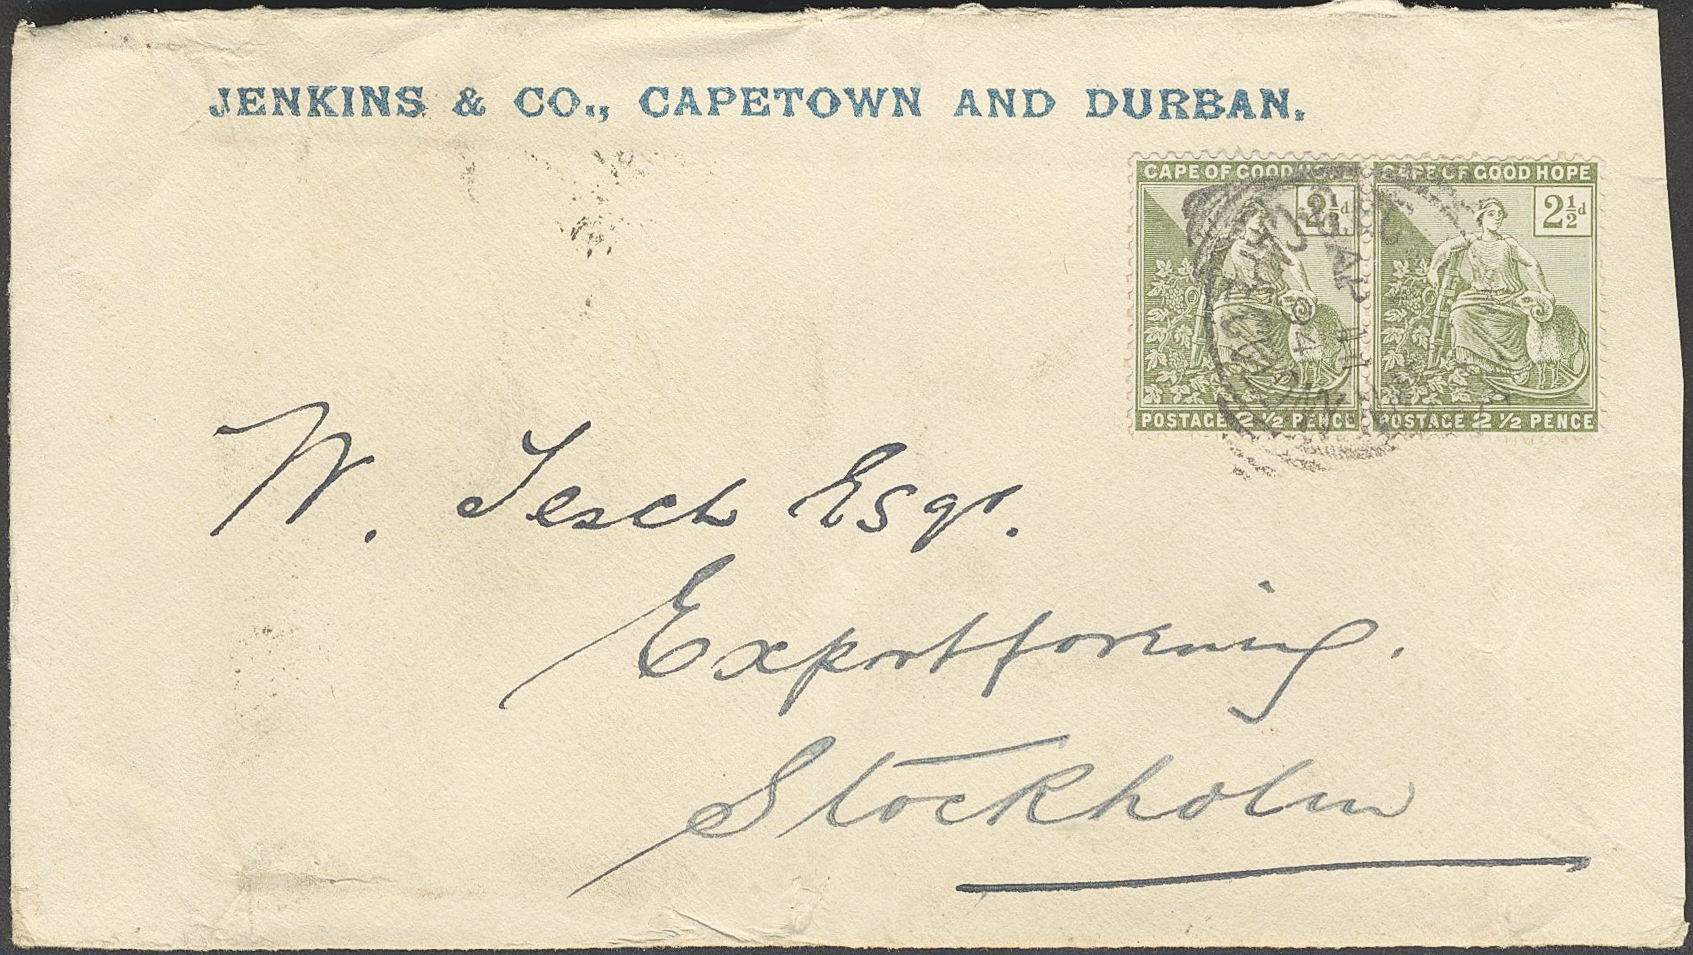 JENKINS & CO., CAPETOWN AND DURBAN.
CAPE OF GOOD HOPE
2½d
POSTAGE 2 ½ PENCE
CAPE OF GOOD HOPE
2½d
POSTAGE 2 ½ PENCE
AP 11
94
W. Tesch Esqr.
Exportforening.
Stockholm